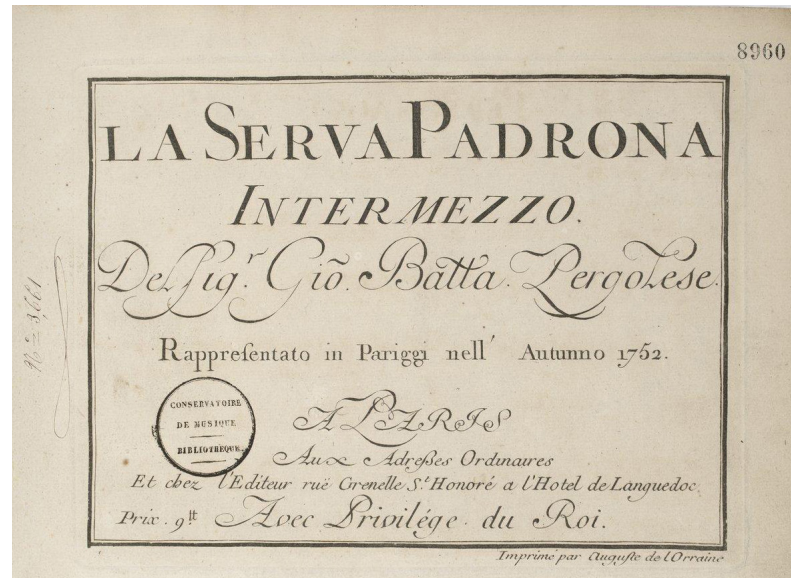 8960
LA SERVA PADRONA
INTERMEZZO.
Del Sig.r Gio. Batta. Pergolese.
Rappresentato in Pariggi nell' Autunno 1752.
CONSERVATOIRE
DE MUSIQUE
BIBLIOTHEQUE
A PARIS
Aux Adresses Ordinaires
Et chez l'Editeur ruë Grenelle S.t Honoré a l'Hotel de Languedoc.
Prix. 9.tt Avec Privilége du Roi.
Imprimé par Auguste de l'Orraine